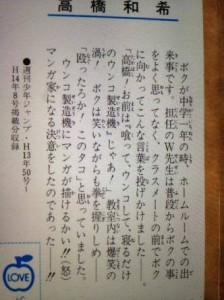 高橋和希
ボクが中学二年の時、ホームルームでの出
来事です。担任のW先生は普段からボクの事
をよく思ってなく、クラスメートの前でボク
に向かってこんな言葉を投げかけました。
「高橋、お前は〝喰って、ウンコして、寝るだけ
のウンコ製造機〟じゃあ!!」教室内は爆笑の
渦!ボクは笑いながらも拳を握りしめ――
「殴ったろか!このタコ」と思っていました。
ウンコ製造機にマンガが描けるかい!!(怒)
マンガ家になる決意をしたのであった…!!
●週刊少年ジャンプ・H13年50号〜
H14年8号掲載分収録
LOVE